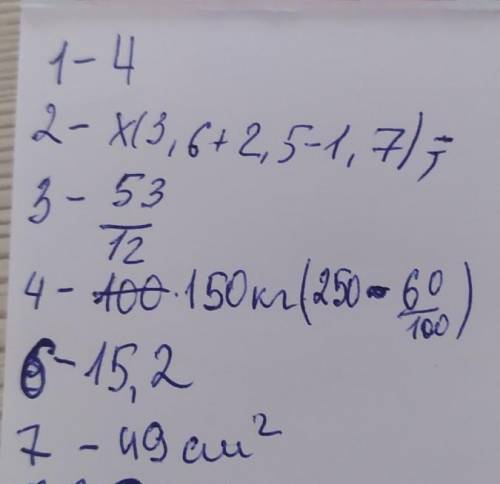 1 - 4
2 - x(3,6+2,5-1,7);
3 - 53/12
4 - 100 · 150кг (250 - 60/100)
6 - 15,2
7 - 49 см²